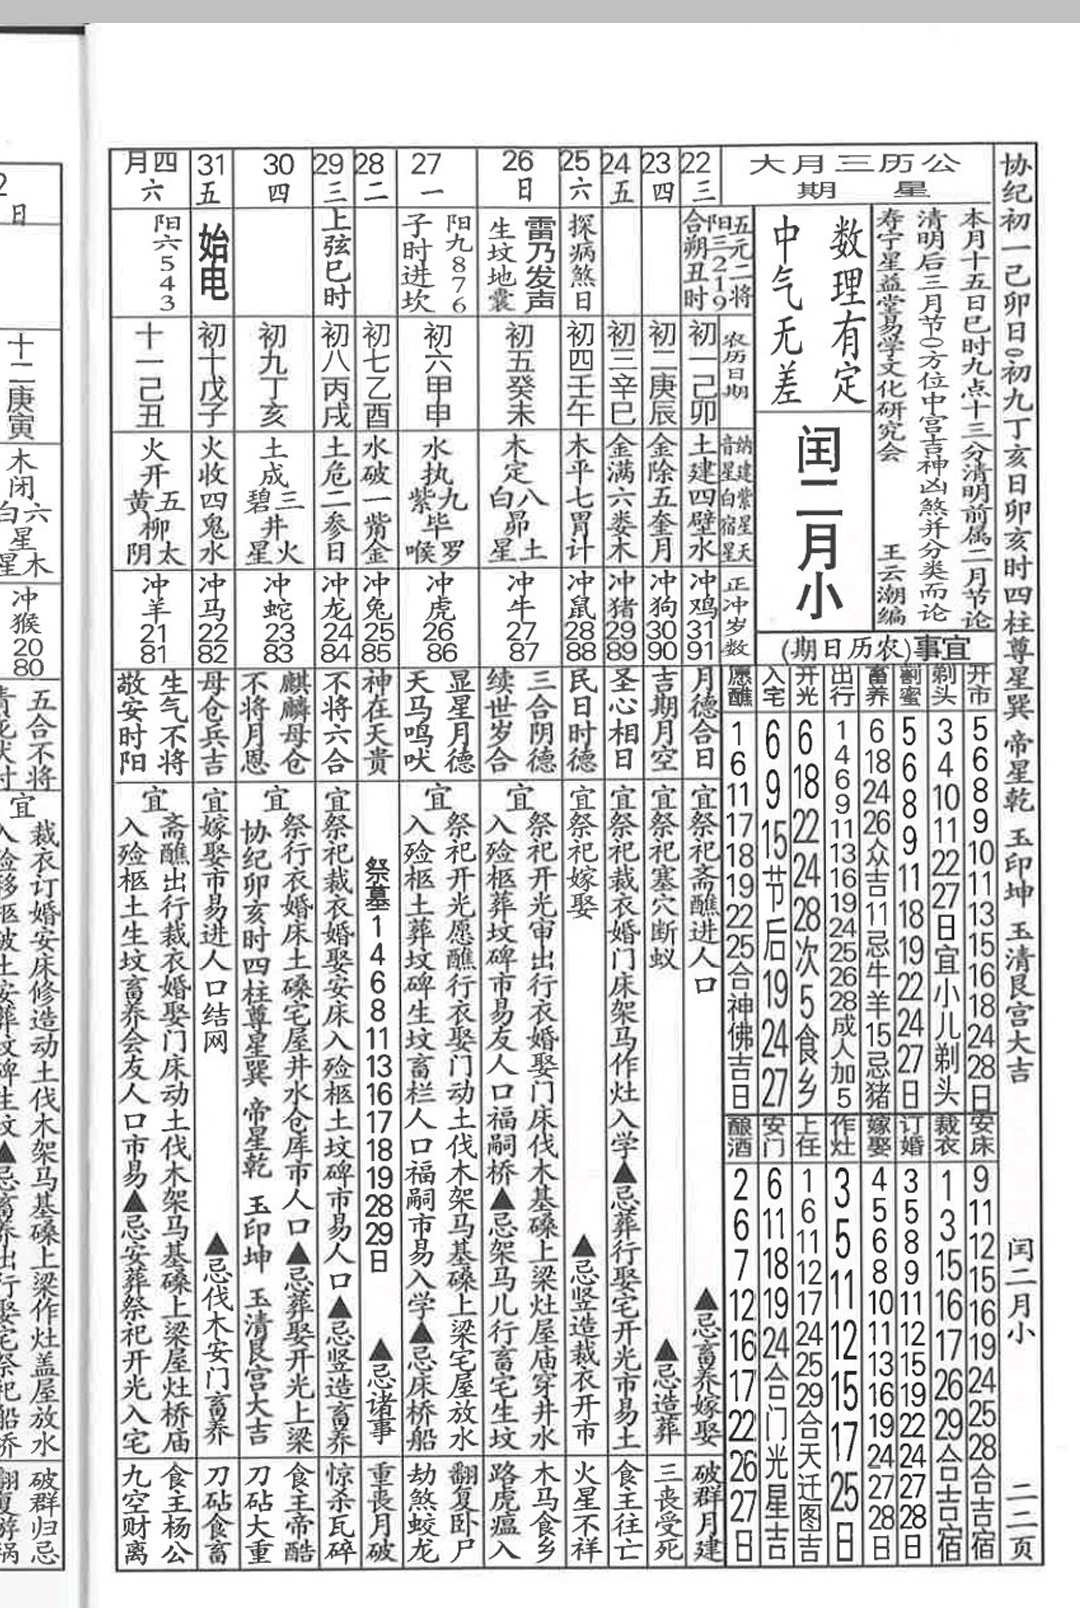 协纪初一己卯日0初九丁亥日卯亥时四柱尊星巽 帝星乾 玉印坤 玉清艮宫大吉
闰二月小
二二页
公历三月大
星期
本月十五日巳时九点十三分清明前属二月节论
清明后三月节0方位中宫吉神凶煞并分类而论
寿宁星益堂易学文化研究会
王云潮编
数理有定
中气无差
闰二月小
宜事(农历日期)
开市
5 6 8 9 10 11 13 15 16 18 24 28日
剃头
3 4 10 11 22 27日宜小儿剃头
割蜜
5 6 8 9 11 18 19 22 24 27日
畜养
6 18 24 26众吉11忌牛羊15忌猪
出行
1 4 6 9 11 13 16 19 24 25 26 28成人加5
开光
6 18 22 24 28次5食乡
入宅
6 9 15节后19 24 27
愿醮
1 6 11 17 18 19 22 25合神佛吉日
安床
9 11 12 15 16 19 24 25 28合吉宿
裁衣
1 3 15 16 17 26 29合吉宿
订婚
3 5 8 9 11 12 15 19 22 24 27 28日
嫁娶
4 5 6 8 10 11 13 16 19 24 27 28日
作灶
3 5 11 12 15 17 25日
上任
1 6 11 12 17 24 25 29合天迁图吉
安门
6 11 18 19 24合门光星吉
酿酒
2 6 7 12 16 17 22 26 27日
五元二将
阳三219
合朔丑时
农历日期
纳音
建星
紫白
星宿
天星
正冲岁数
22
三
初一己卯
土建四壁水
冲鸡3191
月德合日
宜祭祀斋醮进人口
▲忌畜养嫁娶
破群月建
23
四
初二庚辰
金除五奎月
冲狗3090
吉期月空
宜祭祀塞穴断蚁
▲忌造葬
三丧受死
24
五
初三辛巳
金满六娄木
冲猪2989
圣心相日
宜祭祀裁衣婚门床架马作灶入学▲忌葬行娶宅开光市易土
食王往亡
25
六
探病煞日
初四壬午
木平七胃计
冲鼠2888
民日时德
宜祭祀嫁娶
▲忌竖造裁衣开市
火星不祥
26
日
雷乃发声
生坟地震
初五癸未
木定八白昴土星
冲牛2787
三合阴德
续世岁合
宜
祭祀开光宙出行衣婚娶门床伐木基磉上梁灶屋庙穿井水
入殓柩葬坟碑市易友人口福嗣桥▲忌架马儿行畜宅生坟
木马食乡
路虎瘟入
27
一
阳九876
子时进坎
初六甲申
水执九紫毕罗喉
冲虎2686
显星月德
天马鸣吠
宜
祭祀开光愿醮行衣娶门动土伐木架马基磉上梁宅屋放水
入殓柩土葬坟碑生坟畜栏人口福嗣市易入学▲忌床桥船
翻复卧尸
劫煞蛟龙
28
二
初七乙酉
水破一觜金
冲兔2585
神在天贵
祭墓1 4 6 8 11 13 16 17 18 19 28 29日
▲忌诸事
重丧月破
29
三
上弦巳时
初八丙戌
土危二参日
冲龙2484
不将六合
宜祭祀裁衣婚娶安床入殓柩土坟碑市易人口▲忌竖造畜养
惊杀瓦碎
30
四
初九丁亥
土成三碧井火星
冲蛇2383
麒麟母仓
不将月恩
宜
祭行衣婚床土磉宅屋井水仓库市人口▲忌葬娶开光上梁
协纪卯亥时四柱尊星巽 帝星乾 玉印坤 玉清艮宫大吉
食王帝酷
刀砧大重
31
五
始电
初十戊子
火收四鬼水
冲马2282
母仓兵吉
宜嫁娶市易进人口结网
▲忌伐木安门畜养
刀砧食畜
四月
六
阳六543
十一己丑
火开五黄柳太阴
冲羊2181
生气不将
敬安时阳
宜
斋醮出行裁衣婚娶门床动土伐木架马基磉上梁屋灶桥庙
入殓柩土生坟畜养会友人口市易▲忌安葬祭祀开光入宅
食王杨公
九空财离
2
日
十二庚寅
木闭六白星木星
冲猴2080
五合不将
宜
裁衣订婚安床修造动土伐木架马基磉上梁作灶盖屋放水
破群归忌